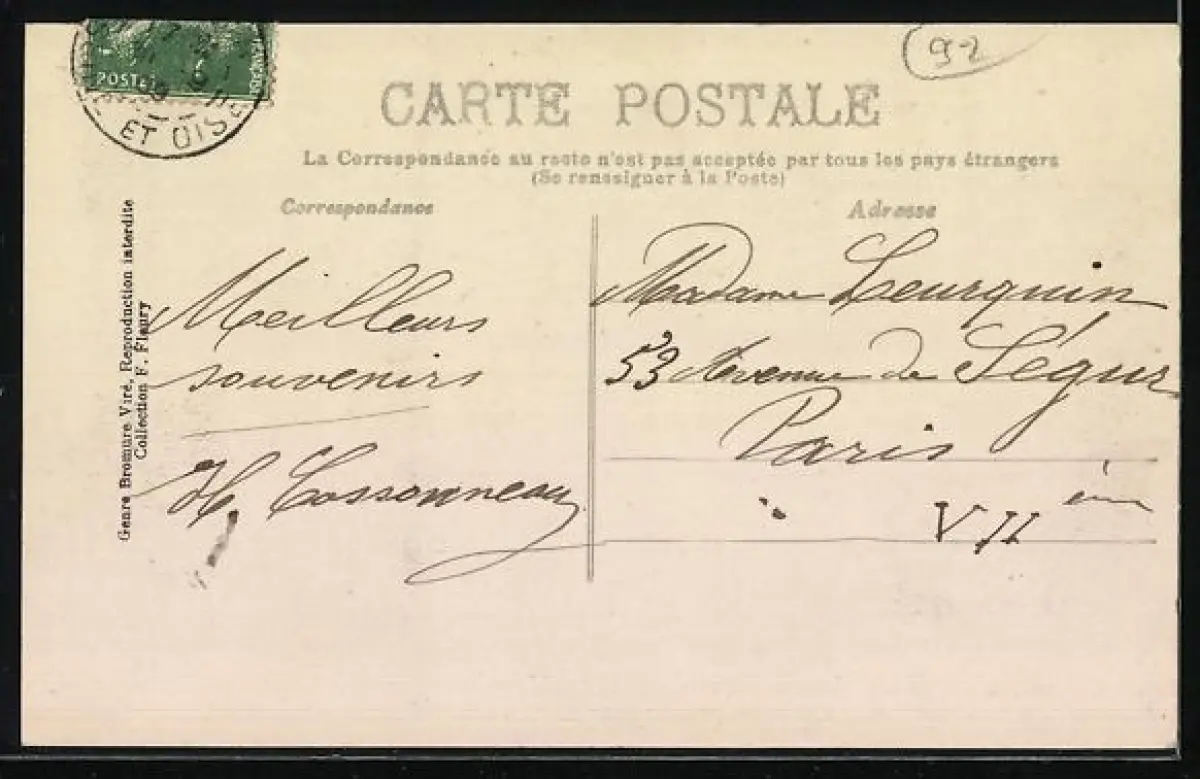 92
POSTES
ET OISE
CARTE POSTALE
La Correspondance au recto n'est pas acceptée par tous les pays étrangers
(Se renseigner à la Poste)
Correspondance
Adresse
Genre Bromure Viré, Reproduction interdite
Collection F. Fleury
Meilleurs
souvenirs
H. Cossonneau
Madame Leurquin
53 Avenue de Ségur
Paris
VII ème